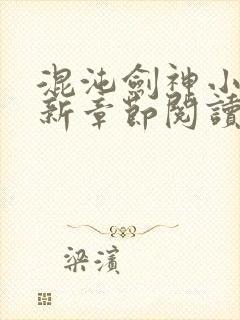 混沌劍神小
新章節閱讀
梁濱